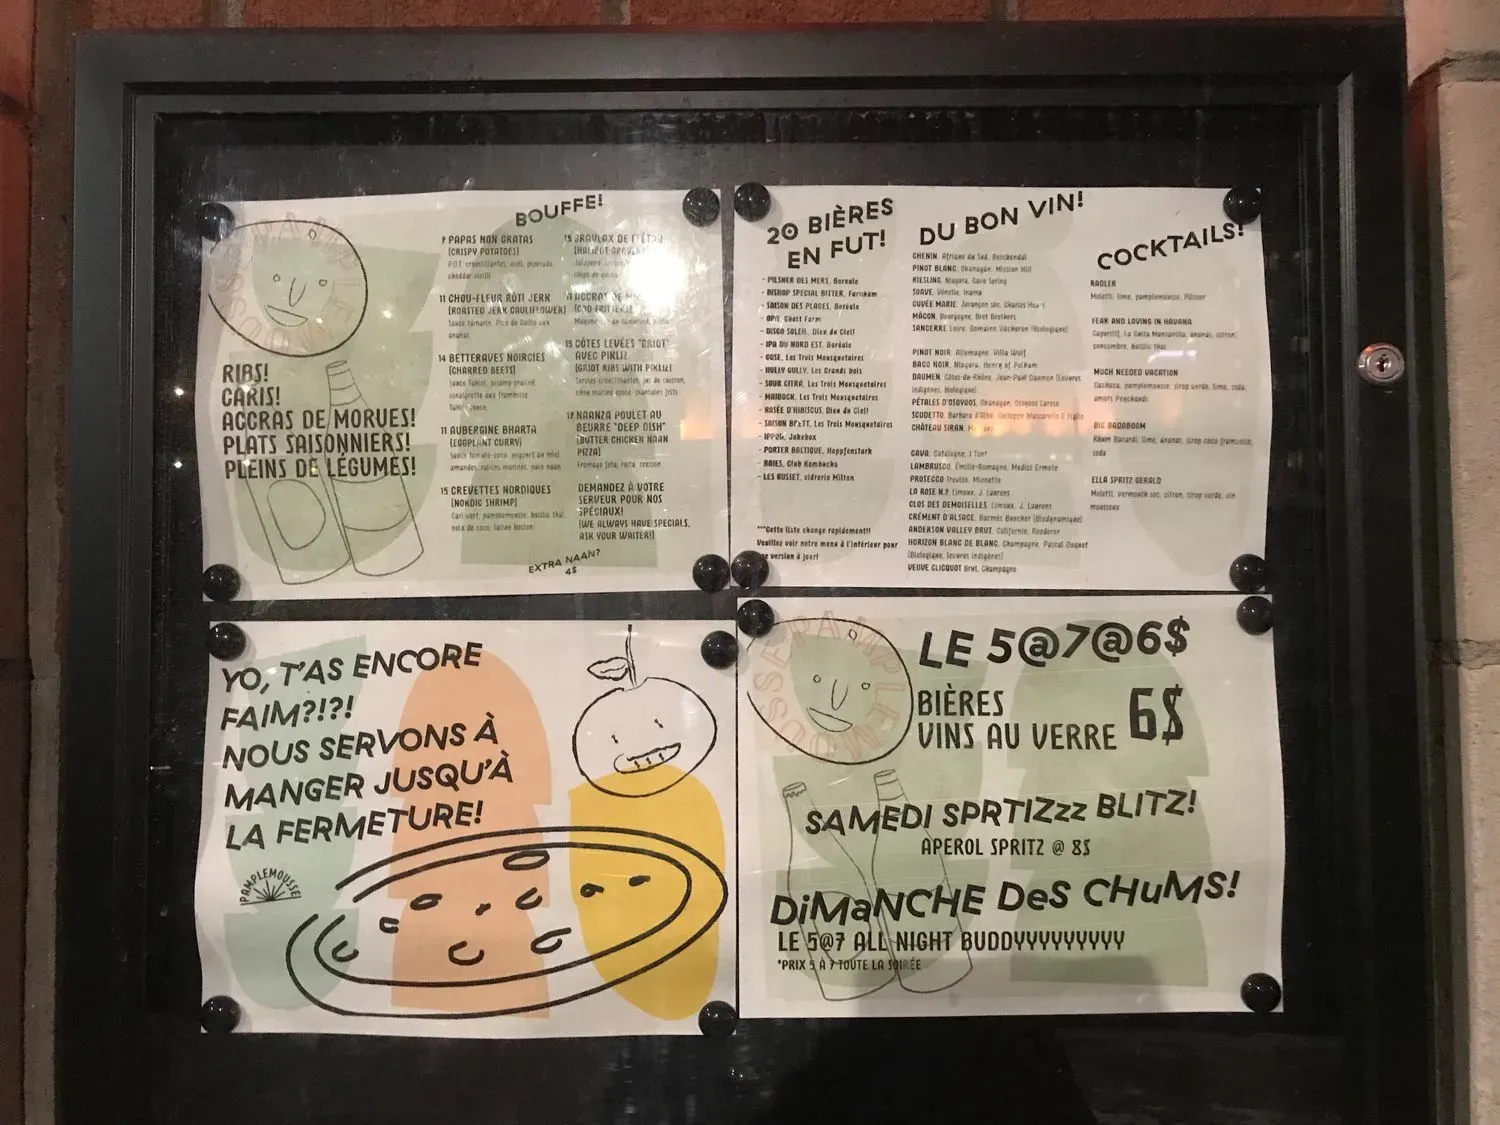 BOUFFE!
RIBS!
CARIS!
ACCRAS DE MORUES!
PLATS SAISONNIERS!
PLEINS DE LÉGUMES!
7 PAPAS NON GRATAS
(CRISPY POTATOES)
cheddar vieilli
11 CHOU-FLEUR RÔTI JERK
(ROASTED JERK CAULIFLOWER)
Sauce tamarin, Pico de Gallo aux
ananas
14 BETTERAVES NOIRCIES
(CHARRED BEETS)
Sauce Tahini, sésame praliné,
vinaigrette aux framboise
11 AUBERGINE BHARTA
(EGGPLANT CURRY)
Sauce tomato-coco, yogourt au miel,
amandes, raisins marinés, pain naan
15 CREVETTES NORDIQUES
(NORDIC SHRIMP)
Cari vert, pamplemousse, basilic thaï,
noix de coco, laitue boston
15 GRAVLAX DE FLÉTAN
(HALIBUT GRAVLAX)
ACCRAS DE
15 CÔTES LEVÉES "GRIOT"
AVEC PIKLIZ
(GRIOT RIBS WITH PIKLIZ)
17 NAANZA POULET AU
BEURRE "DEEP DISH"
(BUTTER CHICKEN NAAN
PIZZA)
Fromage feta, raita, cresson
DEMANDEZ À VOTRE
SERVEUR POUR NOS
SPÉCIAUX!
(WE ALWAYS HAVE SPECIALS,
ASK YOUR WAITER!)
EXTRA NAAN?
4$
20 BIÈRES
EN FUT!
- PILSNER DES MERS, Boréale
- BISHOP SPECIAL BITTER, Farnham
- SAISON DES PLAGES, Boréale
- OPA, Ghost Farm
- DISCO SOLEIL, Dieu du Ciel!
- IPA DU NORD EST, Boréale
- GOSE, Les Trois Mousquetaires
- HULLY GULLY, Les Grands bois
- SOUR CITRA, Les Trois Mousquetaires
- MAIBOCK, Les Trois Mousquetaires
- ROSÉE D'HIBISCUS, Dieu du Ciel!
- SAISON BRETT, Les Trois Mousquetaires
Jukebox
- PORTER BALTIQUE, Hoppfenstark
- BAIES, Club Kombucha
- LES RUSSET, cidrerie Milton
***Cette liste change rapidement!!!
Veuillez voir notre menu à l'intérieur pour
version à jour!
DU BON VIN!
CHENIN, Afrique du Sud, Boschendal
PINOT BLANC, Okanagan, Mission Hill
RIESLING, Niagara, Cave Spring
SOAVE, Vénétie, Inama
CUVÉE MARIE, Jurançon sec, Charles Hours
MÂCON, Bourgogne, Bret Brothers
SANCERRE, Loire, Domaine Vacheron (Biologique)
PINOT NOIR, Allemagne, Villa Wolf
BACO NOIR, Niagara, Henry of Pelham
DAUMEN, Côtes-du-Rhône, Jean-Paul Daumen (Levures
indigènes, Biologique)
PÉTALES D'OSOYOOS, Okanagan, Osoyoos Larose
SCUDETTO, Barbera d'Alba, Giuseppe Mascarello E Figlio
CHÂTEAU SIRAN,
CAVA, Catalogne, 1 Tant
LAMBRUSCO, Émilie-Romagne, Medici Ermete
PROSECCO Treviso, Mionetto
LA ROSE N.7, Limoux, J. Laurens
CLOS DES DEMOISELLES, Limoux, J. Laurens
CRÉMENT D'ALSACE, Barmès Buecher (Biodynamique)
ANDERSON VALLEY BRUT, Californie, Roederer
HORIZON BLANC DE BLANC, Champagne, Pascal Doquet
(Biologique, levures indigènes)
VEUVE CLICQUOT Brut, Champagne
COCKTAILS!
RADLER
Meletti, lime, pamplemousse, Pilsner
FEAR AND LOVING IN HAVANA
La Gitta Manzanilla, ananas, citron,
concombre, basilic thaï
MUCH NEEDED VACATION
Cachaca, pamplemousse, sirop verde, lime, soda,
amers Peychauds
BIG BADABOOM
Rhum Bacardi, lime, ananas, sirop coco framboise,
soda
ELLA SPRITZ GERALD
Meletti, vermouth sec, citron, sirop verde, vin
mousseux
YO, T'AS ENCORE
FAIM?!?!
NOUS SERVONS À
MANGER JUSQU'À
LA FERMETURE!
PAMPLEMOUSSE
PAMPLEMOUSSE
LE 5@7@6$
BIÈRES
VINS AU VERRE 6$
SAMEDI SPRTIZzz BLITZ!
APEROL SPRITZ @ 8$
DiMaNCHE DeS CHuMS!
LE 5@7 ALL NIGHT BUDDYYYYYYYYY
*PRIX 5 À 7 TOUTE LA SOIRÉE